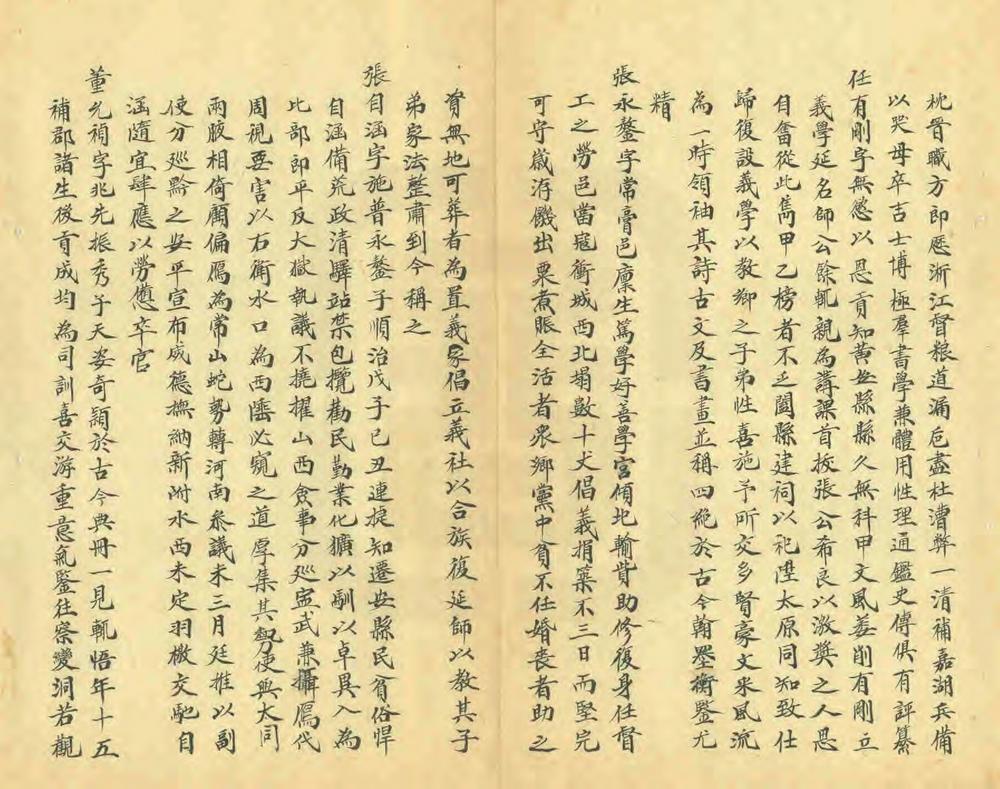 枕晉職方郎歷浙江督粮道漏巵盡杜漕弊一清補嘉湖兵備
以哭母卒吉士博極羣書學兼體用性理通鑑史傳俱有評纂
任有剛字無慾以恩貢知黃安縣縣久無科甲文風差削有剛立
義學延名師公餘輒親為講課首拔張公希良以激奬之人思
自奮從此雋甲乙榜者不乏闔縣建祠以祀陞太原同知致仕
歸復設義學以教鄉之子弟性喜施予所交多賢豪文采風流
為一時領袖其詩古文及書畫並稱四絶於古今翰墨衡鑒尤
精
張永鏊字常膏邑廩生篤學好善學宮傾圮輸貲助修復身任督
工之勞邑當寇衝城西北塌數十丈倡義捐築不三日而堅完
可守歲洊饑出粟煮賑全活者衆鄉黨中貧不任婚喪者助之
資無地可葬者為置義冢倡立義社以合族復延師以教其子
弟家法整肅到今稱之
張自涵字施普永鏊子順治戊子己丑連捷知遷安縣民貧俗悍
自涵備荒政清驛站禁包攬勸民勤業化獷以馴以卓異入為
比部郎平反大獄執議不撓擢山西僉事分巡寧武兼攝鴈代
周視要害以右衛水口為西陲必窺之道厚集其勢使與大同
兩腋相倚顧偏鴈為常山蛇勢轉河南叅議未三月廷推以副
使分巡黔之安平宣布威德撫納新附水西未定羽檄交馳自
涵隨宜肆應以勞憊卒官
董允禎字兆先振秀子天姿奇穎於古今典冊一見輒悟年十五
補郡諸生後貢成均為司訓喜交游重意氣鑒往察變洞若觀